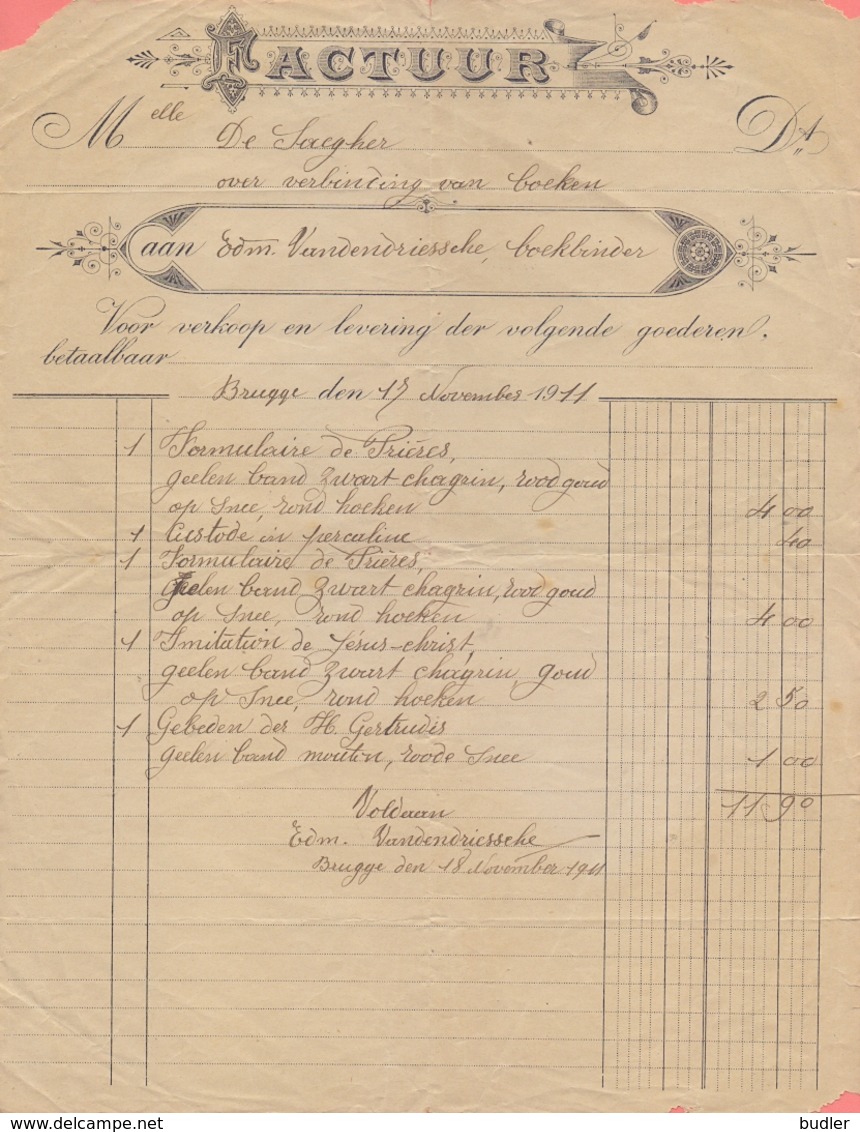 FACTUUR
Melle De Saegher Dt
over verbinding van boeken
aan Edm. Vandendriessche, boekbinder
Voor verkoop en levering der volgende goederen.
betaalbaar
Brugge den 17 November 1911
1 Formulaire de Prières,
geelen band zwart chagrin, rood goud
op snee, rond hoeken 4 00
1 Custode in percaline 40
1 Formulaire de Prières,
geelen band zwart chagrin, rood goud
op snee, rond hoeken 4 00
1 Imitation de Jésus-christ,
geelen band zwart chagrin, goud
op snee, rond hoeken 2 50
1 Gebeden der H. Gertrudis
geelen band mouton, roode snee 1 00
11 90
Voldaan
Edm. Vandendriessche
Brugge den 18 November 1911
www.delcampe.net
budler